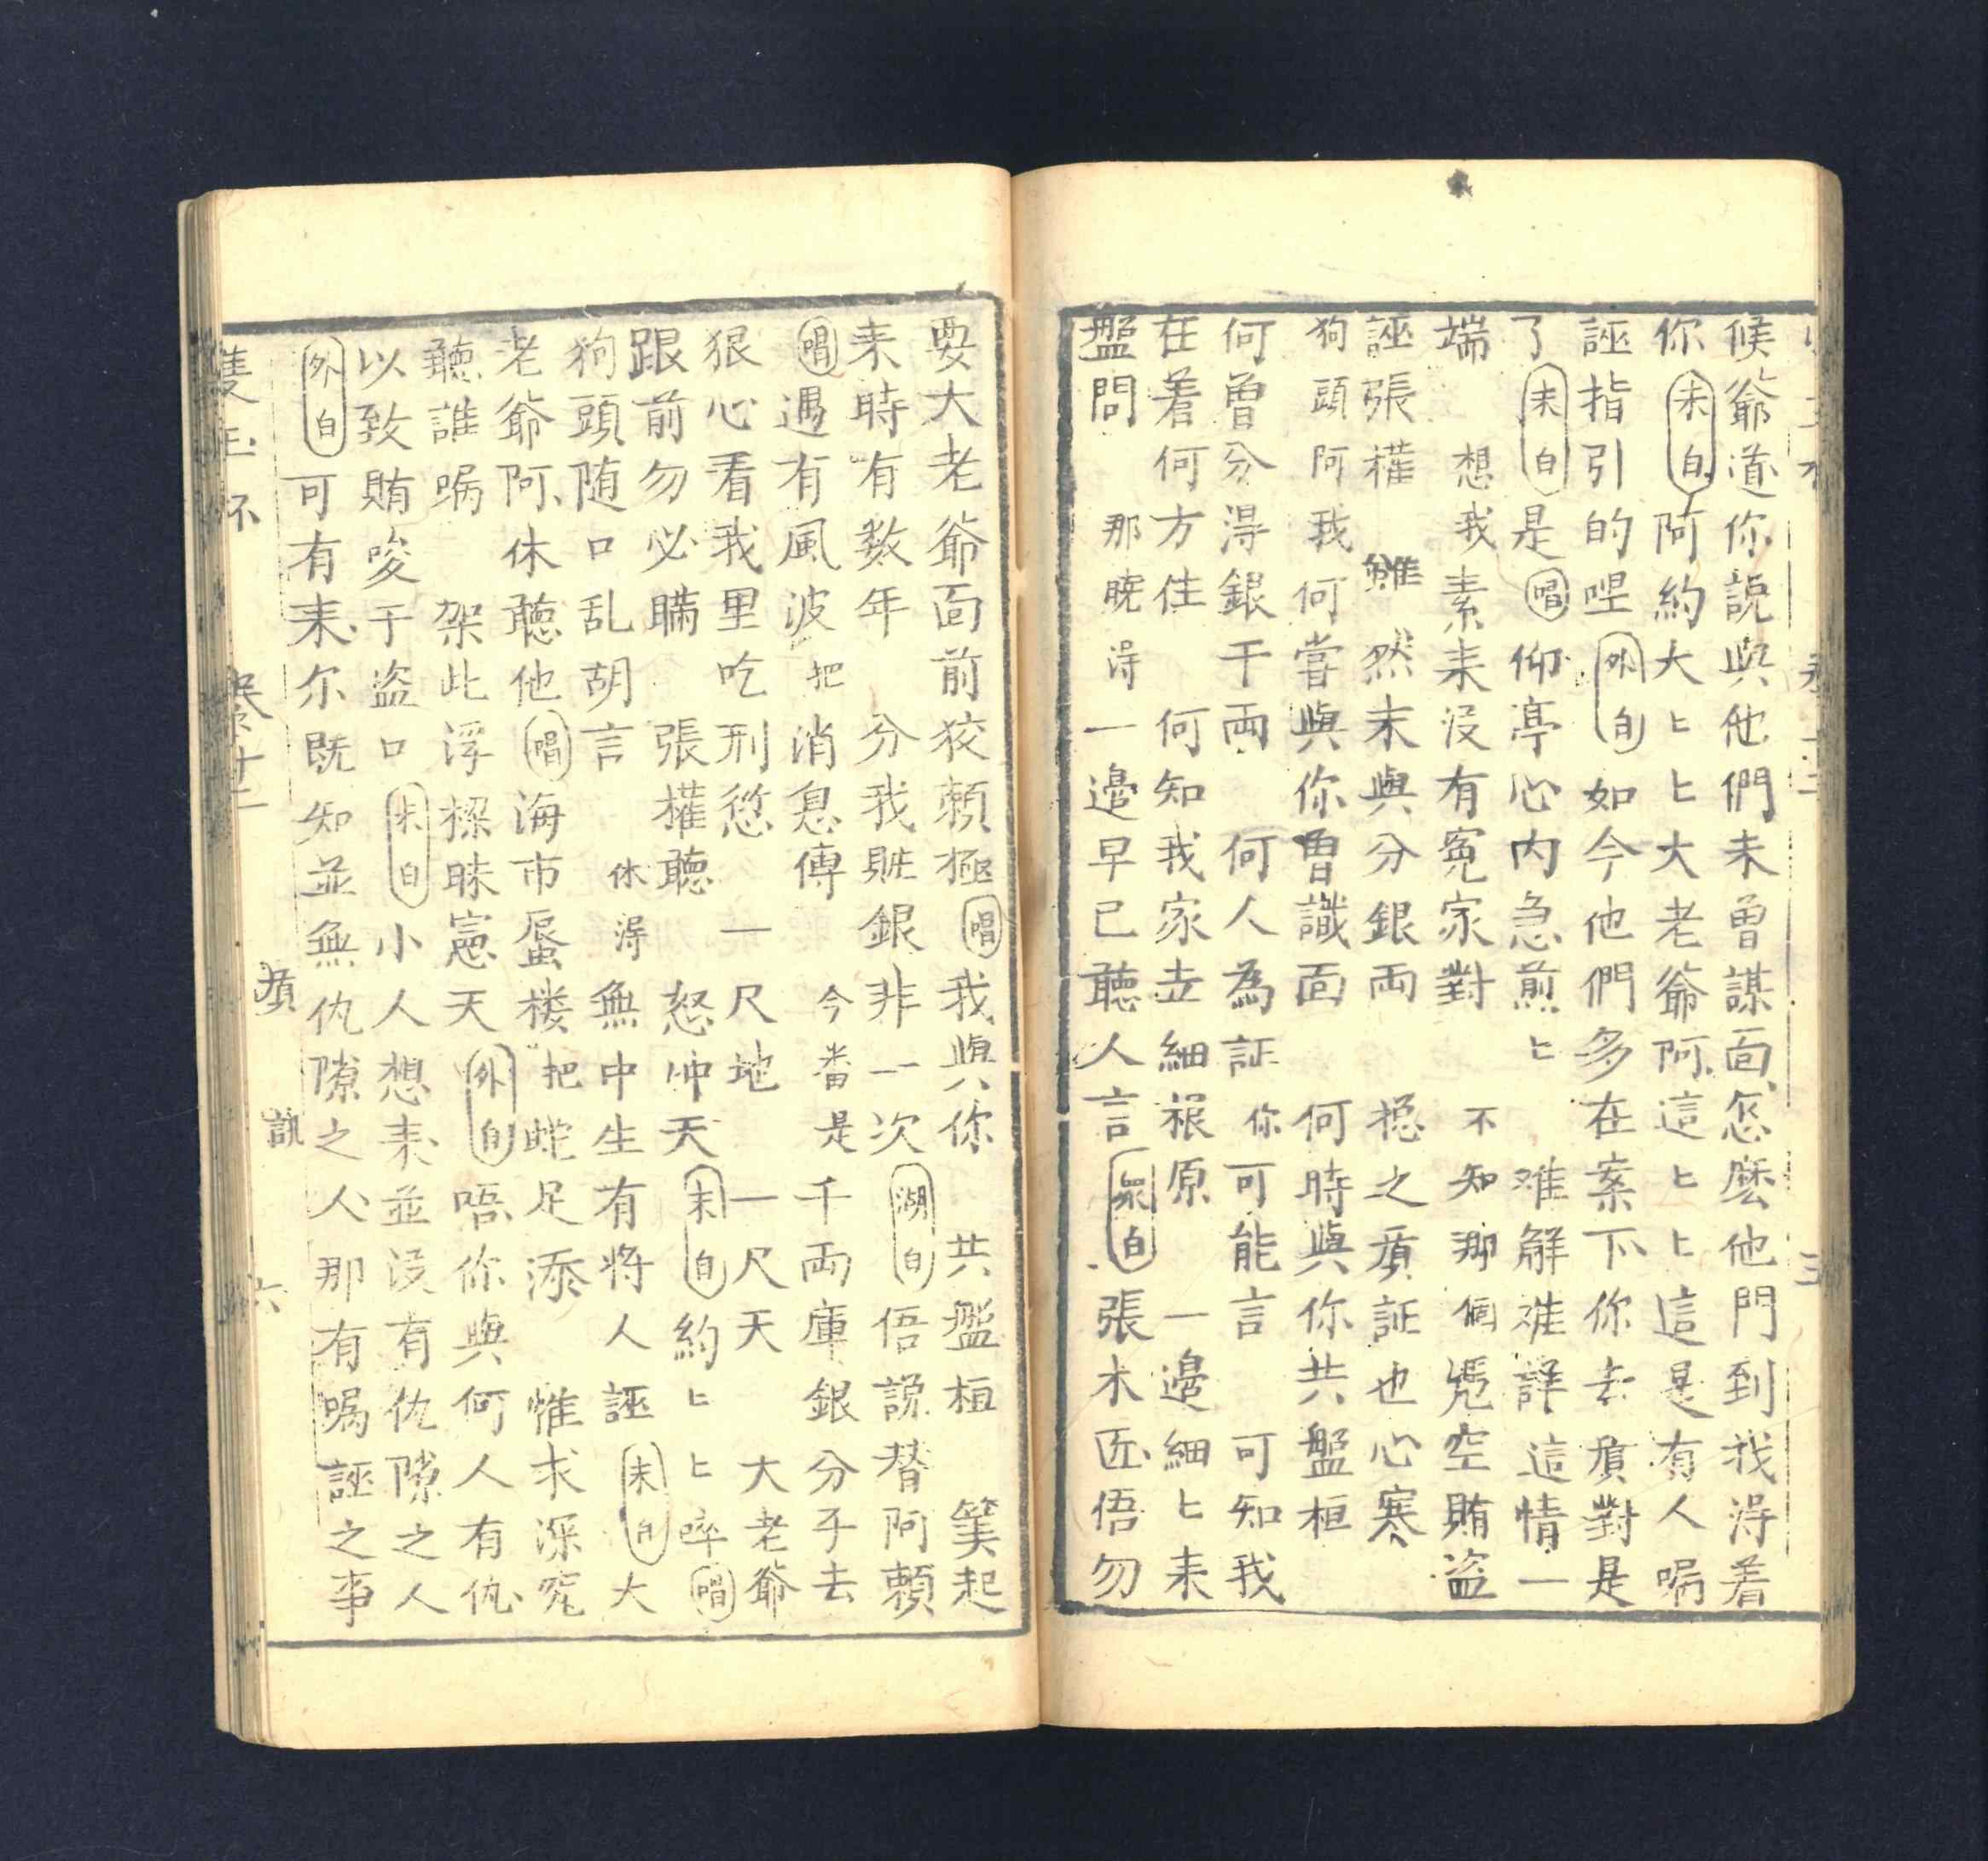 候爺道你說與他們未曾謀面怎麽他門到我淂着
你末白阿約大ヒヒ大老爺阿這ヒヒ這是有人嘱
誣指引的哩外白如今他們多在案下你去質對是
了末白是唱仰亭心内急煎ヒ 难解难詳這情一
端 想我素来没有寃家對 不知那個凴空賄盗
誣張權 雖然末與分銀両 捴之質証也心寒
狗頭阿我何嘗與你曾識面 何時與你共盤桓
何曾分淂銀千両 何人為証你可能言 可知我
在着何方住 何知我家去細根原 一邉細ヒ来
盤問 那曉淂一邉早已聽人言 白張木匠俉勿
要大老爺面前狡頼極唱我與你 共盤桓 筭起
来時有数年 分我賍銀非一次湖白俉說替阿頼
唱遇有風波把消息傳 今番是千両庫銀分手去
狠心看我里吃刑愆 一尺地 一尺天 大老爺
跟前勿必瞞 張權聽 怒冲天末白約ヒヒ啐唱
狗頭随口乱胡言 休淂無中生有将人誣末白大
老爺阿休聽他唱海市蜃楼把蛇足添 惟求深究
聽誰嘱 架此浮槕昧憲天外白唔你與何人有仇
以致賄唆于盗口末白小人想来並没有仇隙之人
外白可有来尔既知並無仇隙之人那有嘱誣之事
隻玉杯 卷十二 質 訊 六